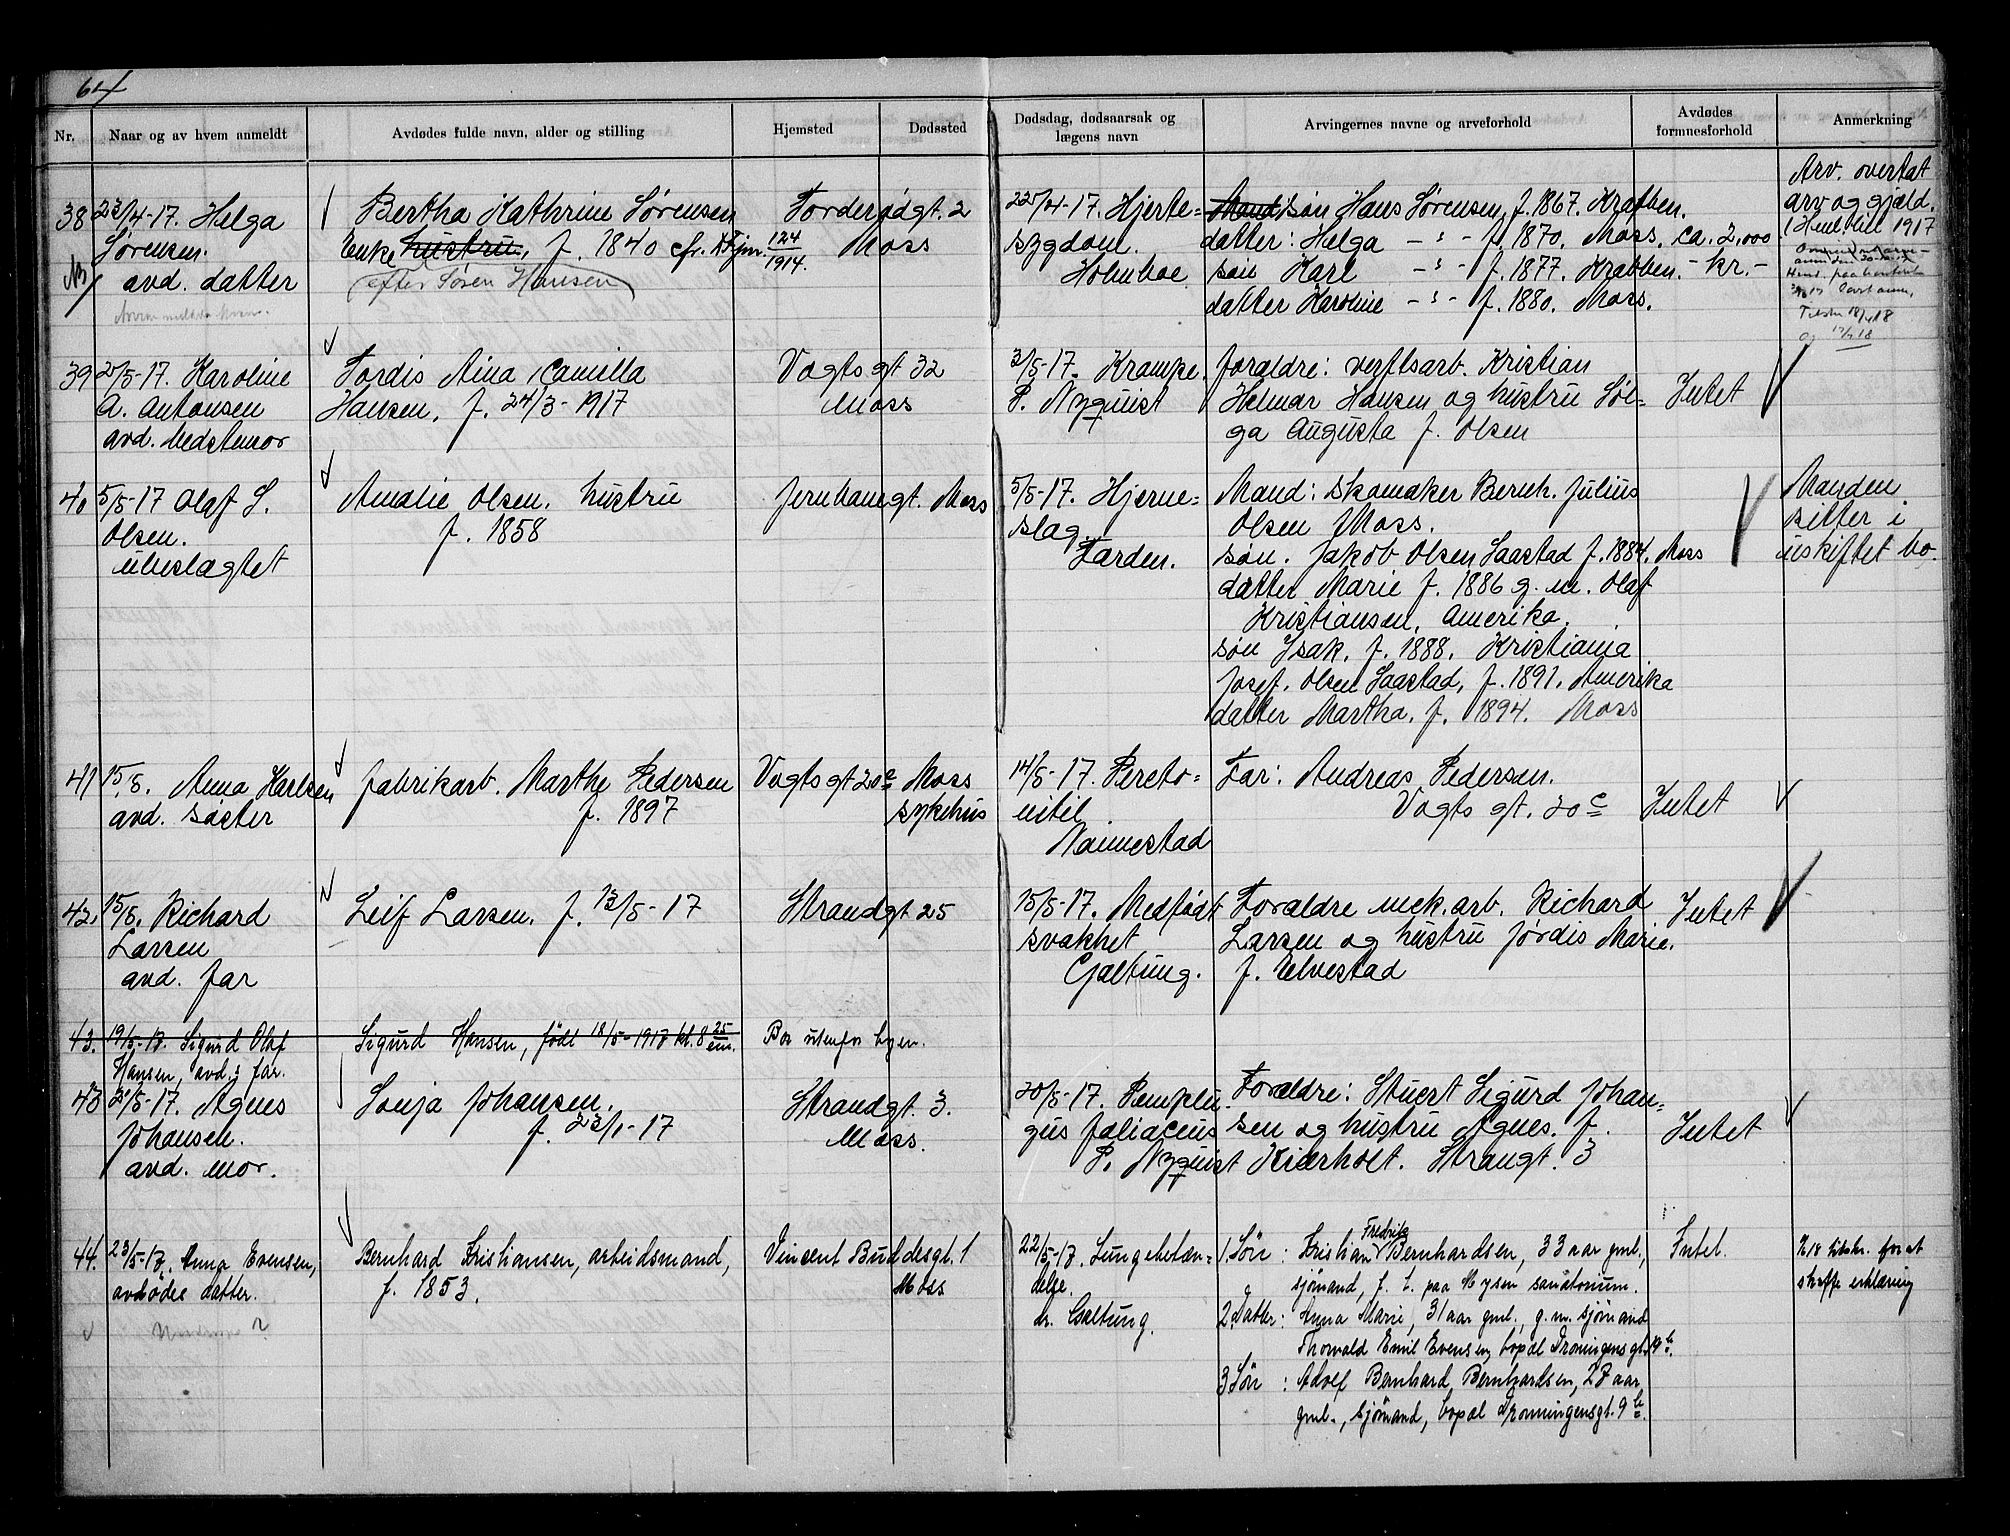 64
Nr. Naar og av hvem anmeldt Avdødes fulde navn, alder og stilling Hjemsted Dødssted Dødsdag, dødsaarsak og lægens navn Arvingernes navne og arveforhold Avdødes formnesforhold Anmerkning
38 23/4-17. Helga
Sørensen.
avd. datter
Bertha Kathrine Sørensen
Enke hustru, f. 1840 cfr. 124/1914.
(efter Søren Hansen)
Fordernødgt. 2
Moss
22/4-17. Hjerte=
sygdom.
Holmboe
Mand søn Hans Sørensen, f. 1867. Krabben.
datter: Helga -"- f. 1870. Moss.
søn Karl -"- f. 1877. Krabben.
datter Karoline -"- f. 1880. Moss.
ca. 2,000
- kr. -
Arv. overtat
arv og gjæld.
1917
39 2/5-17. Karoline
A. Antonsen
avd. bedstemor
Tordis Aina Camilla
Hansen, f. 24/3-1917
Vogts gt 32
Moss
2/5-17. Krampe.
P. Nyquist
foraldre: verftsarb. Kristian
Helmar Hansen og hustru Sol=
ga Augusta f. Olsen
Intet
40 5/5-17 Olaf S.
Olsen.
ubeslagtet
Amalie Olsen. hustru
f. 1858
Jernbanegt. Moss
5/5-17. Hjerne=
slag.
Farden.
Mand: skomaker Bernh. Julius
Olsen Moss.
søn. Jakob Olsen Saastad f. 1884. Moss
datter Marie f. 1886 g. m. Olaf
Kristiansen, Amerika.
søn Isak. f. 1888. Kristiania
Josef. Olsen Saastad, f. 1891. Amerika
datter Martha. f. 1894. Moss
Manden
sitter i
uskiftet bo.
41 15/5. Anna Karlsen
avd. søster
fabrikarb. Marthe Pedersen
f. 1897
Vogts gt 20c Moss
sykehus
14/5-17. Pereto=
nitil
Nannestad
Far: Andreas Pedersen.
Vogts gt. 20c
Intet
42. 15/5. Richard
Larsen
avd. far
Leif Larsen. f. 13/5-17
Strandgt 25
15/5-17. Medfødt
svakhet
Galtung.
Foraldre mek. arb. Richard
Larsen og hustru Jordis Marie.
f. Elvestad
Intet
43. 19/5-17. Sigurd Olaf
Hansen, avd.s far.
Sigurd Hansen, født 18/5-1917 kl. 8 25 em.
Bor utenfor byen.
43 21/5-17. Agnes
Johansen.
avd. mor.
Sonja Johansen.
f. 23/1-17
Strandgt. 3.
Moss.
20/5-17. Pemphi-
gus foliaceus
P. Nyquist
Foraldre: Stuert Sigurd Johan=
sen og hustru Agnes. f.
Kiærholt. Strangt. 3
Intet
44. 23/5-17. Anna Evensen,
avdødes datter.
Bernhard Kristiansen, arbeidsmand,
f. 1853.
Vincent Buddesgt. 1
Moss
22/5-17. Lungebetæn-
delse.
dr. Galtung.
1. Søn: Kristian Fredrik Bernhardsen, 33 aar gml.,
sjømand, f. t. paa Mysen sanatorium.
2. Datter: Anna Marie, 31 aar gml., g. m. sjømand
Thorvald Emil Evensen, bopæl Dronningensgt. 19b.
3 Søn: Adolf Bernhard Bernhardsen, 28 aar
gml., sjømand, bopæl Dronningensgt. 9b.
Intet.
for at
skaffe erklæring